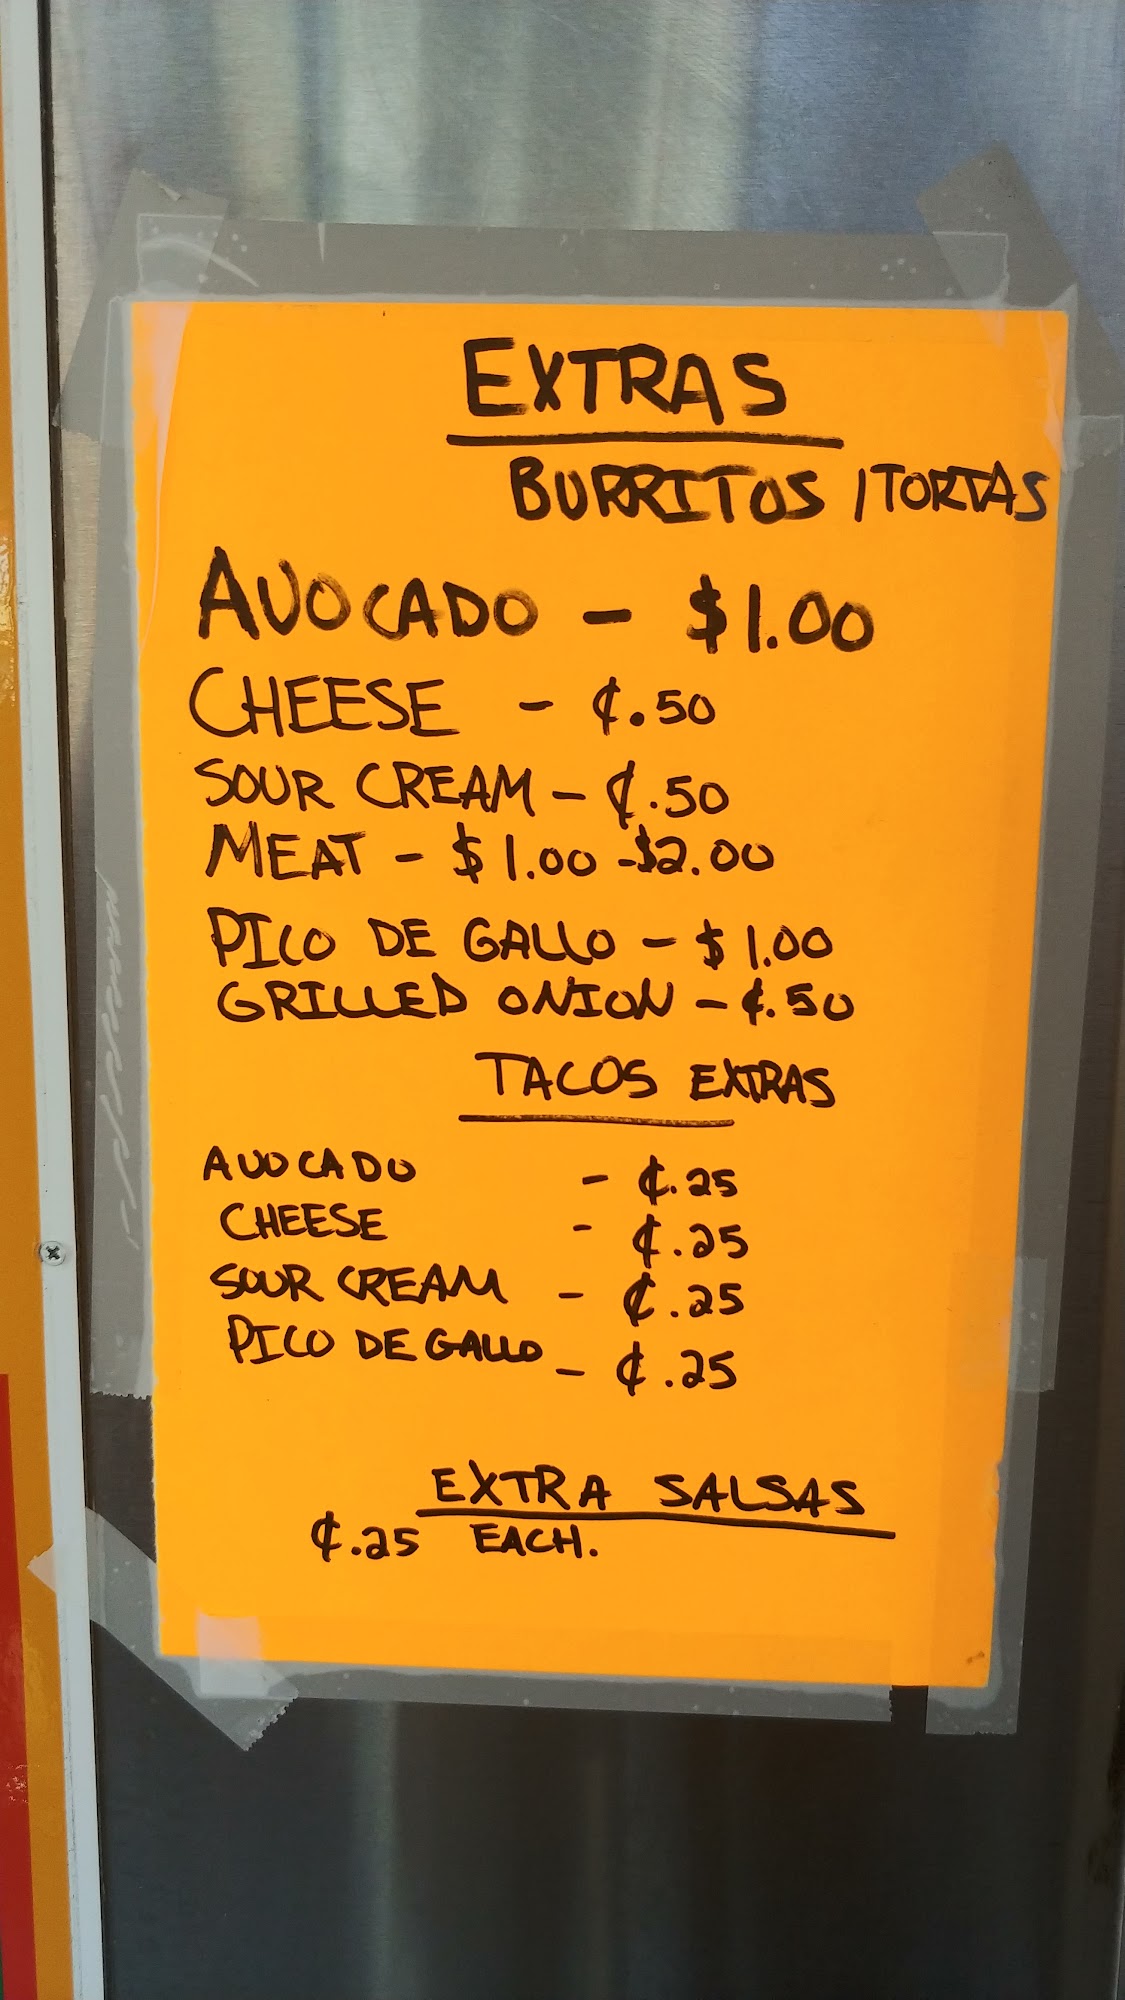 EXTRAS
BURRITOS / TORTAS
AVOCADO - $1.00
CHEESE - ¢.50
SOUR CREAM - ¢.50
MEAT - $1.00 - $2.00
PICO DE GALLO - $1.00
GRILLED ONION - ¢.50
TACOS EXTRAS
AVOCADO - ¢.25
CHEESE - ¢.25
SOUR CREAM - ¢.25
PICO DE GALLO - ¢.25
EXTRA SALSAS
¢.25 EACH.